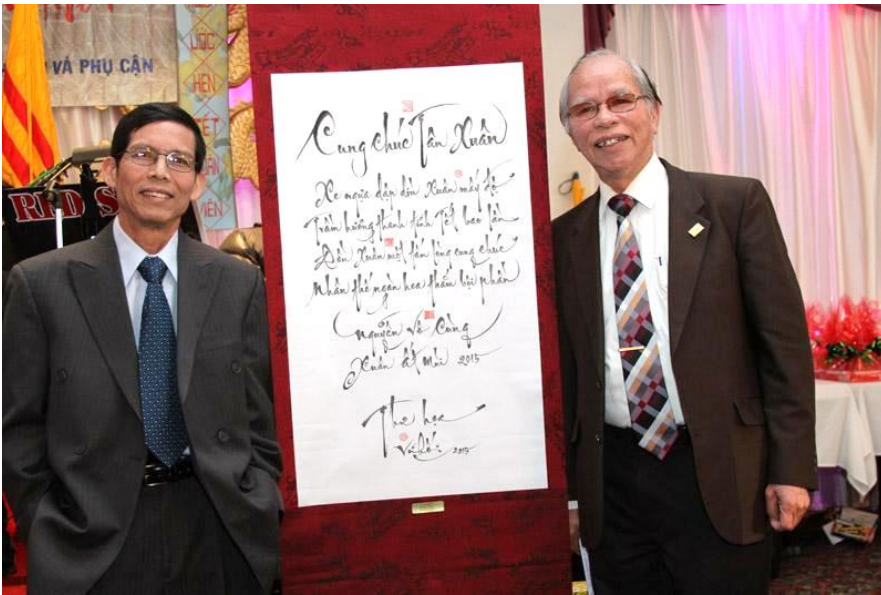 VÀ PHỤ CẬN
ƯỚC
HẸN
TẾT
VIÊN
RED S
Cung chúc Tân Xuân
Xe ngựa dập dìu Xuân mấy độ
Trầm hương thanh tịnh Tết bao lần
Đón Xuân một tấm lòng cung chúc
Nhân thế ngàn hoa thắm bội phần
Nguyễn Vô Cùng
Xuân Ất Mùi 2015
Thư họa
Vũ Hối 2015